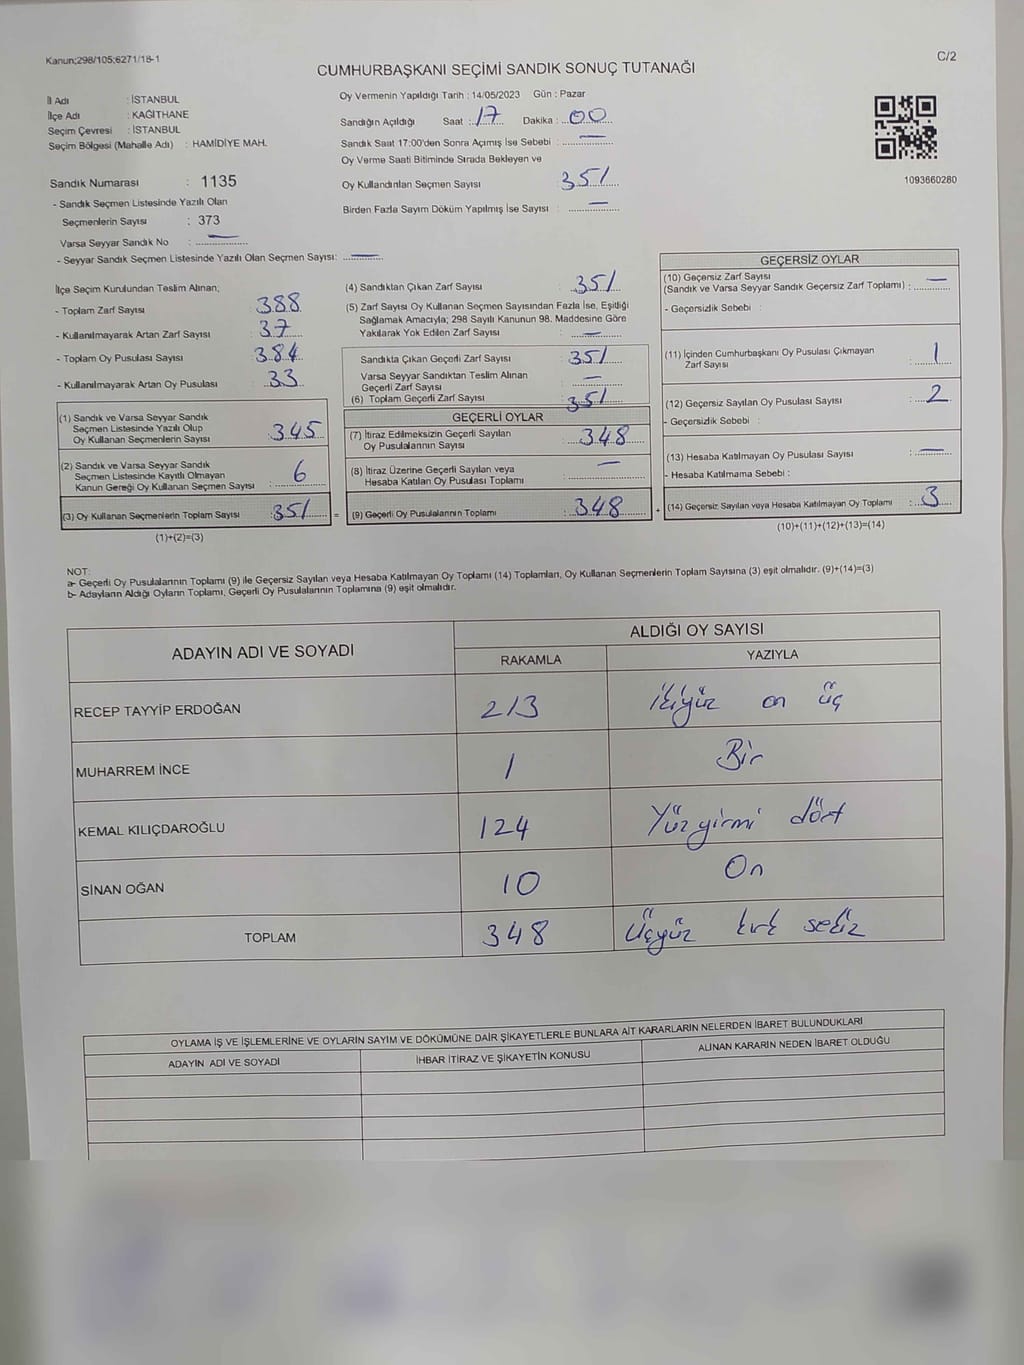 Kanun;298/105;6271/18-1
C/2
CUMHURBAŞKANI SEÇİMİ SANDIK SONUÇ TUTANAĞI
İl Adı : İSTANBUL
İlçe Adı : KAĞITHANE
Seçim Çevresi : İSTANBUL
Seçim Bölgesi (Mahalle Adı) : HAMİDİYE MAH.
Sandık Numarası : 1135
- Sandık Seçmen Listesinde Yazılı Olan
Seçmenlerin Sayısı : 373
Varsa Seyyar Sandık No : —
- Seyyar Sandık Seçmen Listesinde Yazılı Olan Seçmen Sayısı: —
Oy Vermenin Yapıldığı Tarih : 14/05/2023 Gün : Pazar
Sandığın Açıldığı Saat : 17 Dakika : 00
Sandık Saat 17:00'den Sonra Açımış İse Sebebi : —
Oy Verme Saati Bitiminde Sırada Bekleyen ve
Oy Kullandırılan Seçmen Sayısı 351
Birden Fazla Sayım Döküm Yapılmış İse Sayısı : —
1093660280
İlçe Seçim Kurulundan Teslim Alınan;
- Toplam Zarf Sayısı : 388
- Kullanılmayarak Artan Zarf Sayısı : 37
- Toplam Oy Pusulası Sayısı : 384
- Kullanılmayarak Artan Oy Pusulası : 33
(1) Sandık ve Varsa Seyyar Sandık
Seçmen Listesinde Yazılı Olup
Oy Kullanan Seçmenlerin Sayısı : 345
(2) Sandık ve Varsa Seyyar Sandık
Seçmen Listesinde Kayıtlı Olmayan
Kanun Gereği Oy Kullanan Seçmen Sayısı : 6
(3) Oy Kullanan Seçmenlerin Toplam Sayısı : 351 =
(1)+(2)=(3)
(4) Sandıktan Çıkan Zarf Sayısı : 351
(5) Zarf Sayısı Oy Kullanan Seçmen Sayısından Fazla İse, Eşitliği
Sağlamak Amacıyla; 298 Sayılı Kanunun 98. Maddesine Göre
Yakılarak Yok Edilen Zarf Sayısı : —
Sandıkta Çıkan Geçerli Zarf Sayısı : 351
Varsa Seyyar Sandıktan Teslim Alınan
Geçerli Zarf Sayısı : —
(6) Toplam Geçerli Zarf Sayısı : 351
GEÇERLİ OYLAR
(7) İtiraz Edilmeksizin Geçerli Sayılan
Oy Pusulalarının Sayısı : 348
(8) İtiraz Üzerine Geçerli Sayılan veya
Hesaba Katılan Oy Pusulası Toplamı : —
(9) Geçerli Oy Pusulalarının Toplamı : 348 +
GEÇERSİZ OYLAR
(10) Geçersiz Zarf Sayısı
(Sandık ve Varsa Seyyar Sandık Geçersiz Zarf Toplamı) : —
- Geçersizlik Sebebi :
(11) İçinden Cumhurbaşkanı Oy Pusulası Çıkmayan
Zarf Sayısı : 1
(12) Geçersiz Sayılan Oy Pusulası Sayısı : 2
- Geçersizlik Sebebi :
(13) Hesaba Katılmayan Oy Pusulası Sayısı : —
- Hesaba Katılmama Sebebi :
(14) Geçersiz Sayılan veya Hesaba Katılmayan Oy Toplamı : 3
(10)+(11)+(12)+(13)=(14)
NOT:
a- Geçerli Oy Pusulalarının Toplamı (9) ile Geçersiz Sayılan veya Hesaba Katılmayan Oy Toplamı (14) Toplamları, Oy Kullanan Seçmenlerin Toplam Sayısına (3) eşit olmalıdır. (9)+(14)=(3)
b- Adayların Aldığı Oyların Toplamı, Geçerli Oy Pusulalarının Toplamına (9) eşit olmalıdır.
ADAYIN ADI VE SOYADI
ALDIĞI OY SAYISI
RAKAMLA YAZIYLA
RECEP TAYYİP ERDOĞAN 213 İkiyüz on üç
MUHARREM İNCE 1 Bir
KEMAL KILIÇDAROĞLU 124 Yüz yirmi dört
SİNAN OĞAN 10 On
TOPLAM 348 Üçyüz kırk sekiz
OYLAMA İŞ VE İŞLEMLERİNE VE OYLARIN SAYIM VE DÖKÜMÜNE DAİR ŞİKAYETLERLE BUNLARA AİT KARARLARIN NELERDEN İBARET BULUNDUKLARI
ADAYIN ADI VE SOYADI İHBAR İTİRAZ VE ŞİKAYETİN KONUSU ALINAN KARARIN NEDEN İBARET OLDUĞU